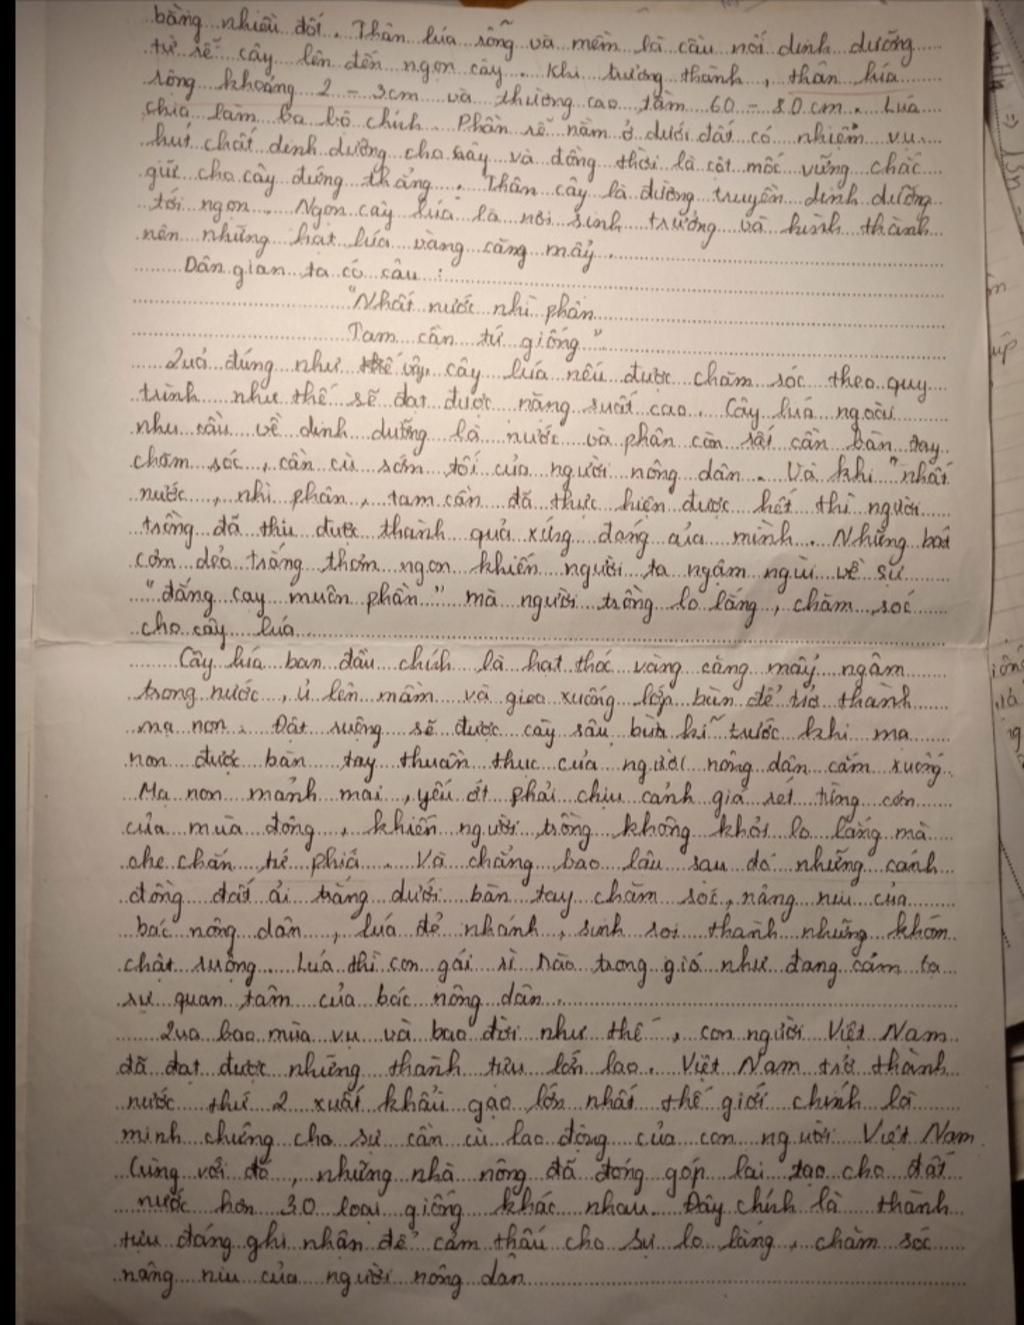 bằng nhiều đốt. Thân lúa rỗng và mềm là cầu nối dinh dưỡng
từ rễ cây lên đến ngọn cây. Khi trưởng thành, thân lúa
rộng khoảng 2 - 3cm và thường cao tầm 60 - 80cm. Lúa
chia làm ba bộ chính. Phần rễ nằm ở dưới đất có nhiệm vụ
hút chất dinh dưỡng cho cây và đồng thời là cột mốc vững chắc
giữ cho cây đứng thẳng. Thân cây là đường truyền dinh dưỡng
tới ngọn. Ngọn cây lúa là nơi sinh trưởng và hình thành
nên những hạt lúa vàng căng mẩy.
Dân gian ta có câu:
"Nhất nước nhì phân
Tam cần tứ giống"
Quả đúng như thế vậy, cây lúa nếu được chăm sóc theo quy
trình như thế sẽ đạt được năng suất cao. Cây lúa ngoài
nhu cầu về dinh dưỡng là nước và phân còn rất cần bàn tay
chăm sóc, cần cù sớm tối của người nông dân. Và khi "nhất
nước, nhì phân, tam cần đã thực hiện được hết thì người
trồng đã thu được thành quả xứng đáng của mình. Những bát
cơm dẻo trắng thơm ngon khiến người ta ngậm ngùi về sự
"đắng cay muôn phần" mà người trồng lo lắng, chăm sóc
cho cây lúa
Cây lúa ban đầu chính là hạt thóc vàng căng mẩy ngâm
trong nước, ủ lên mầm và gieo xuống lớp bùn để trở thành
mạ non. Đất ruộng sẽ được cày sâu bừa kĩ trước khi mạ
non được bàn tay thuần thục của người nông dân cắm xuống.
Mạ non mảnh mai, yếu ớt phải chịu cảnh giá rét từng cơn
của mùa đông, khiến người trồng không khỏi lo lắng mà
che chắn tứ phía. Và chẳng bao lâu sau đó những cánh
đồng đất ải trắng dưới bàn tay chăm sóc, nâng niu của
bác nông dân, lúa đẻ nhánh, sinh sôi thành những khóm
chật ruộng. Lúa thì con gái rì rào trong gió như đang cảm tạ
sự quan tâm của bác nông dân.
Qua bao mùa vụ và bao đời như thế, con người Việt Nam
đã đạt được những thành tựu lớn lao. Việt Nam trở thành
nước thứ 2 xuất khẩu gạo lớn nhất thế giới chính là
minh chứng cho sự cần cù lao động của con người Việt Nam
Cùng với đó, những nhà nông đã đóng góp lai tạo cho đất
nước hơn 30 loại giống khác nhau. Đây chính là thành
tựu đáng ghi nhận để cảm thấu cho sự lo lắng, chăm sóc
nâng niu của người nông dân